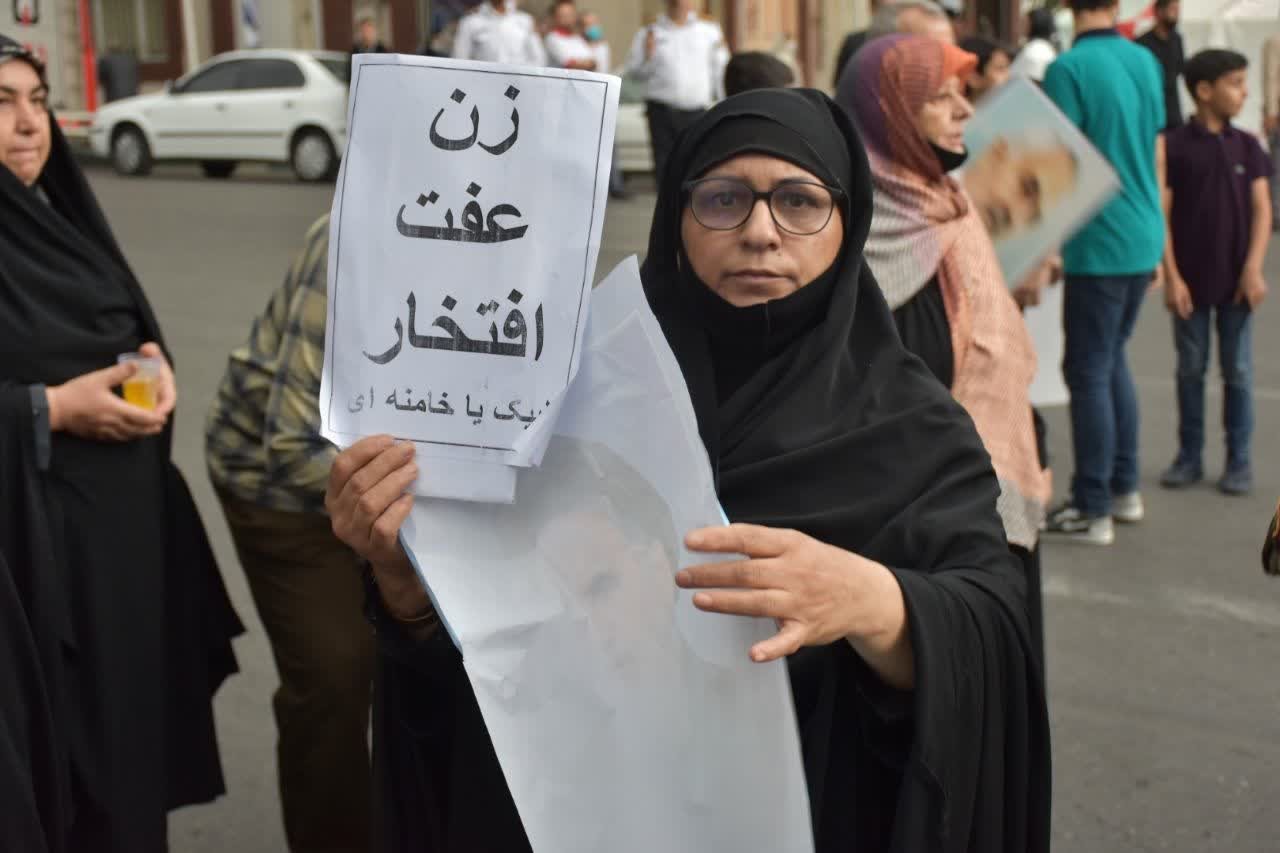 زن
عفت
افتخار
لبیک یا خامنه ای